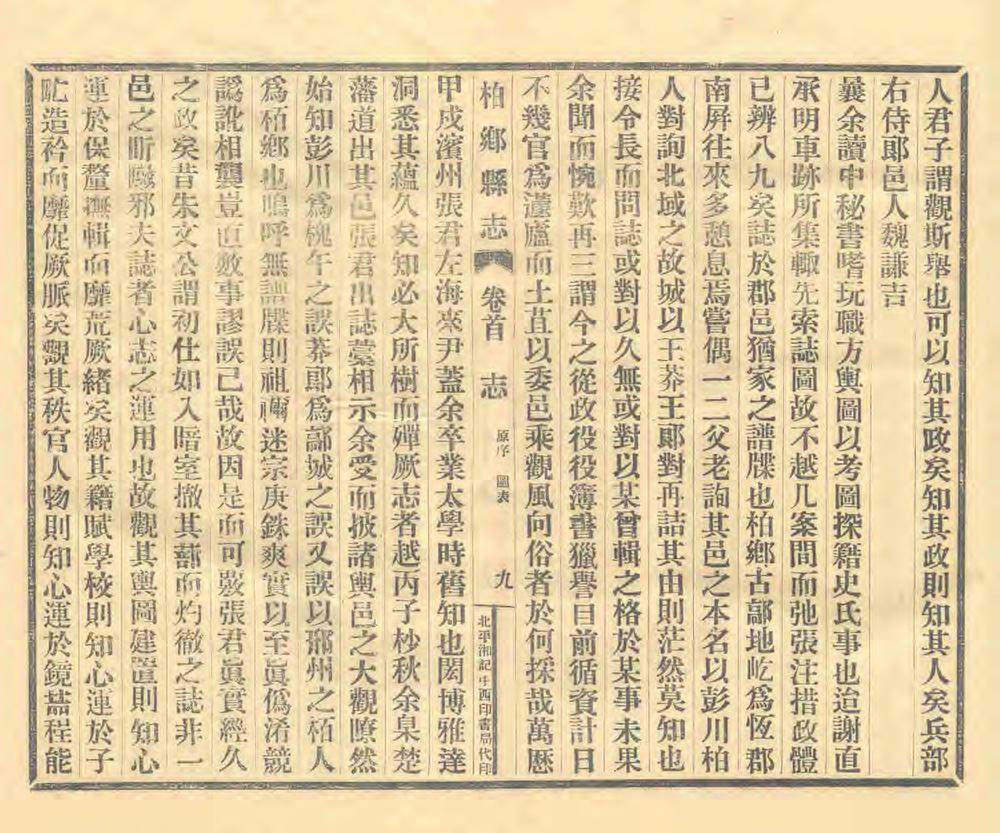 人君子謂觀斯舉也可以知其政矣知其政則知其人矣兵部
右侍郎邑人魏謙吉
曩余讀中秘書嗜玩職方輿圖以考圖探籍史氏事也迨謝直
承明車跡所集輙先索誌圖故不越几案間而弛張注措政體
已辨八九矣誌於郡邑猶家之譜牒也柏鄉古鄗地屹爲恆郡
南屏往來多憩息焉嘗偶一二父老詢其邑之本名以彭川柏
人對詢北域之故城以王莽王郞對再詰其由則茫然莫知也
接令長而問誌或對以久無或對以某曾輯之格於某事未果
余聞而惋歎再三謂今之從政役役簿書獵譽目前循資計日
不幾官爲蘧廬而土苴以委邑乘觀風向俗者於何採哉萬厯
柏鄉縣志 卷首 志 原序 圖表 九 北平湘記中西印書局代印
甲戍濱州張君左海來尹蓋余卒業太學時舊知也閎博雅達
洞悉其蘊久矣知必大所樹而殫厥志者越丙子杪秋余臬楚
藩道出其邑張君出誌藁相示余受而披諸輿邑之大觀瞭然
始知彭川爲槐午之誤莽郞爲鄗城之誤又誤以邢州之栢人
爲栢鄉也嗚呼無譜牒則祖禰迷宗庚銖爽實以至眞僞淆競
譌訛相襲豈直敘事謬誤己哉故因是而可覈張君眞實經久
之政矣昔朱文公謂初仕如入暗室撤其蔀而灼徹之誌非一
邑之昕曦邪夫誌者心志之運用也故觀其輿圖建置則知心
運於保釐撫輯而靡荒厥緒矣觀其籍賦學校則知心運於子
甿造衿而靡促厥脈矣覩其秩官人物則知心運於鏡蓍程能